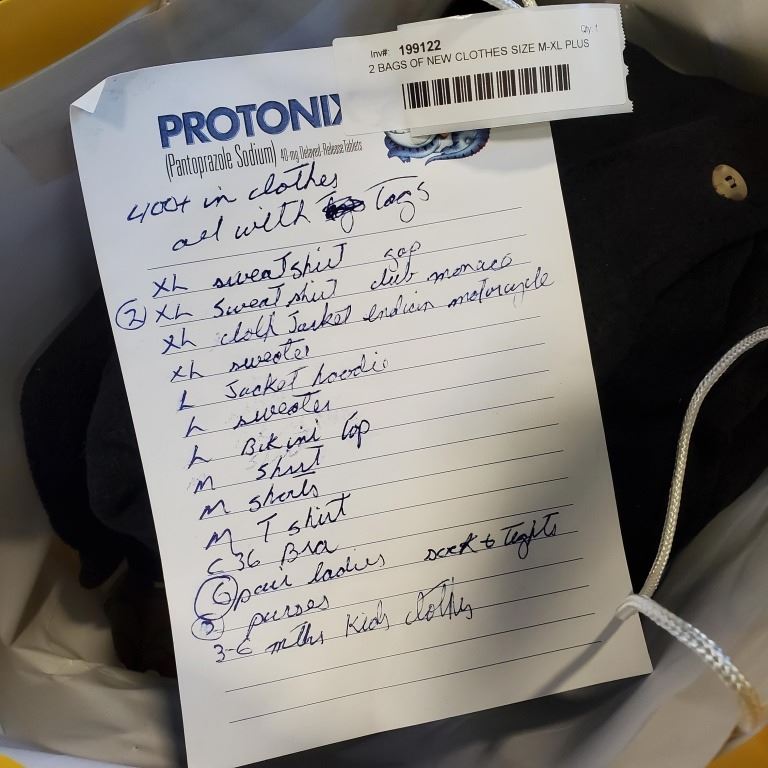 Inv#: 199122
Qty: 1
2 BAGS OF NEW CLOTHES SIZE M-XL PLUS
PROTONIX
(Pantoprazole Sodium) 40 mg Delayed-Release Tablets
400+ in clothes
all with Tags
XL sweatshirt gap
② XL Sweatshirt club monaco
XL cloth Jacket indian motorcycle
XL sweater
L Jacket hoodie
L sweater
L Bikini Top
M shirt
M shorts
M T shirt
C36 Bra
⑥ pair ladies sock & Tights
purses
3-6 mths Kids clothes